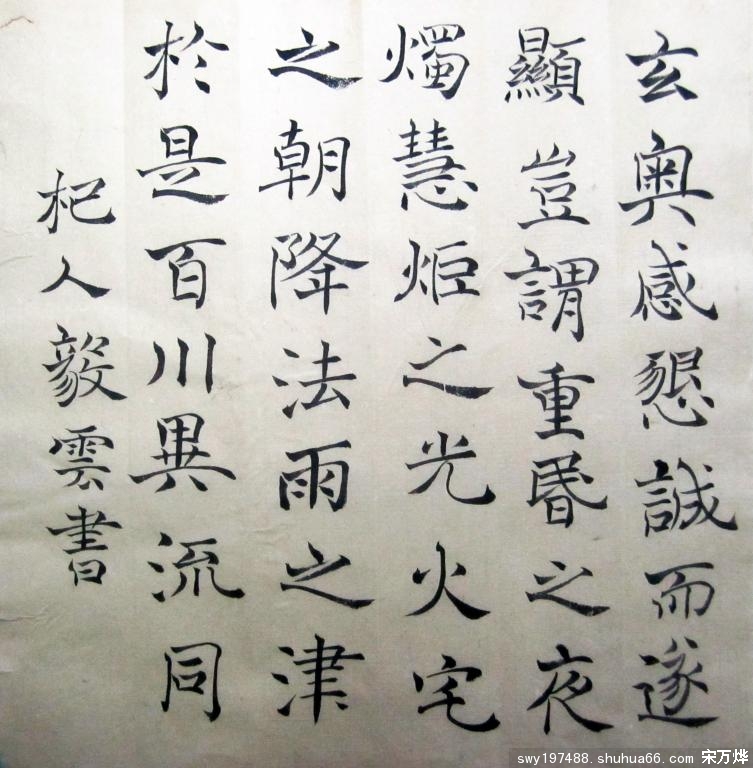 玄奥感懇誠而遂
顯豈謂重昬之夜
燭慧炬之光火宅
之朝降法雨之津
於是百川異流同
杞人毅雲書
swy197488.shuhua66.com 宋万烨